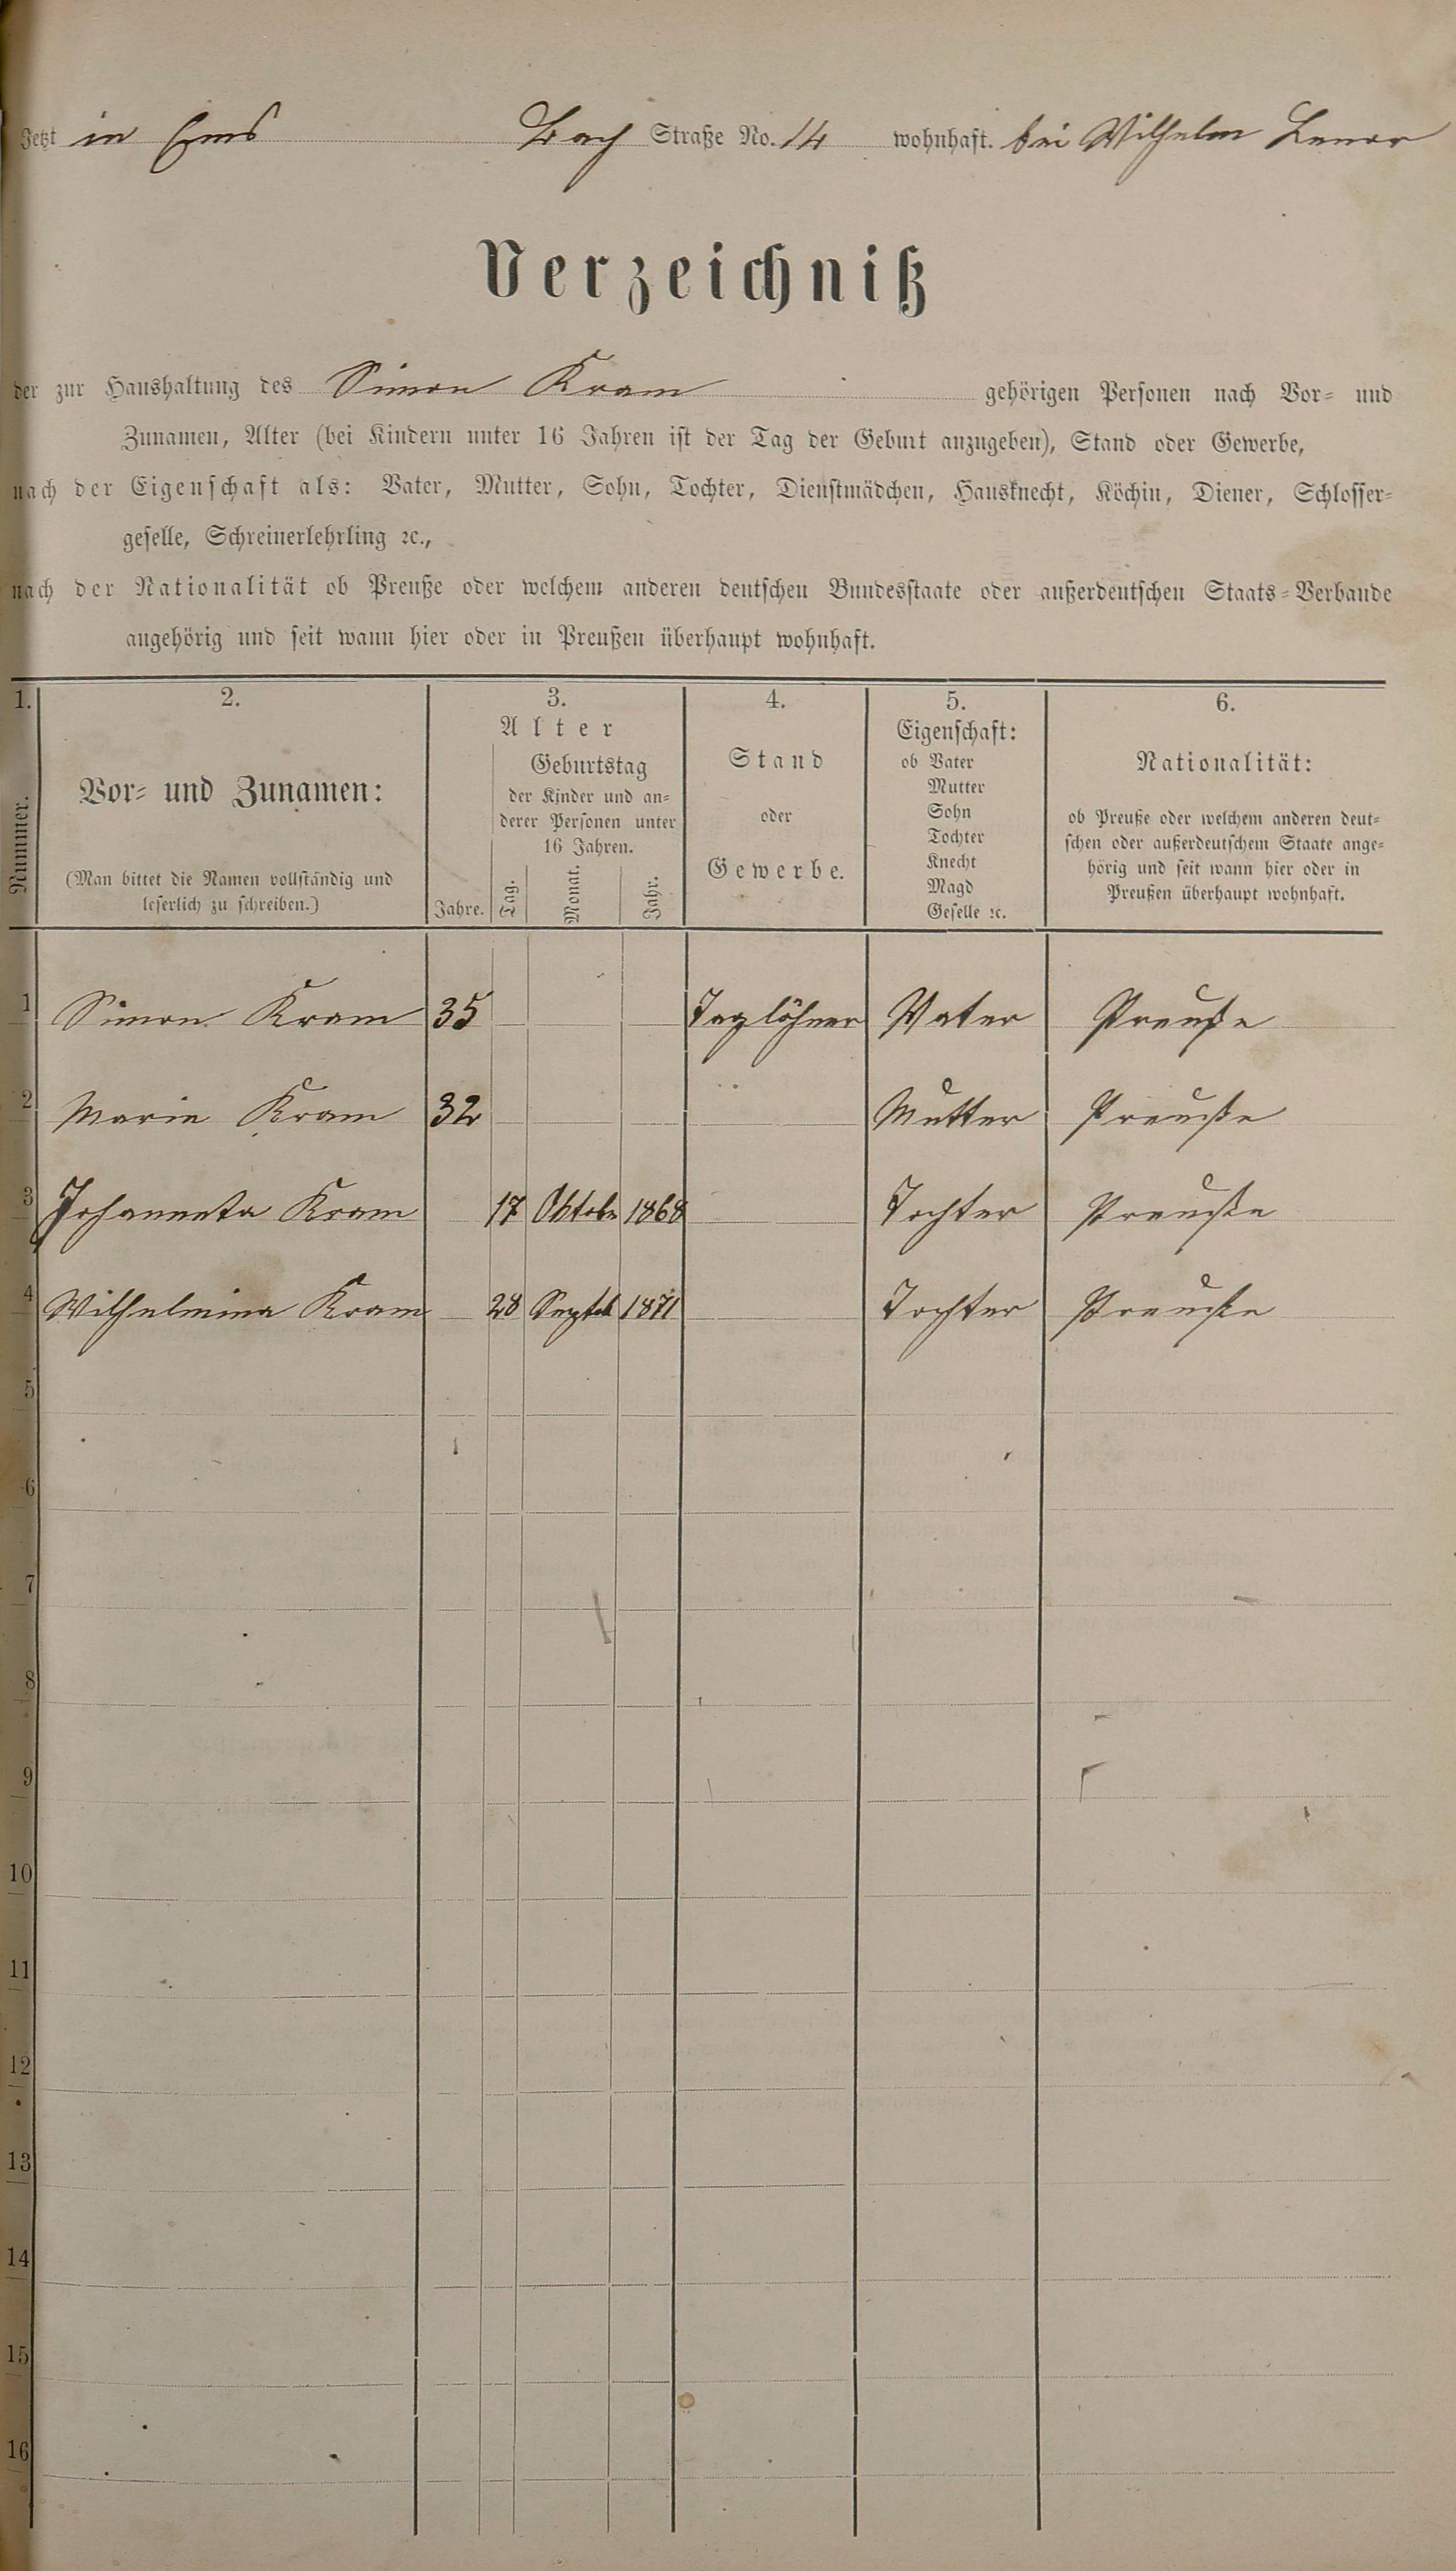 Jetzt in Ems Bach Straße No. 14 wohnhaft. bei Wilhelm Lenor
Verzeichniß
der zur Haushaltung des Simon Kram gehörigen Personen nach Vor- und
Zunamen, Alter (bei Kindern unter 16 Jahren ist der Tag der Geburt anzugeben), Stand oder Gewerbe,
nach der Eigenschaft als: Vater, Mutter, Sohn, Tochter, Dienstmädchen, Hausknecht, Köchin, Diener, Schlosser-
geselle, Schreinerlehrling ꝛc.,
nach der Nationalität ob Preuße oder welchem anderen deutschen Bundesstaate oder außerdeutschen Staats-Verbande
angehörig und seit wann hier oder in Preußen überhaupt wohnhaft.
1. 2. 3. 4. 5. 6.
Nummer.
Vor- und Zunamen:
(Man bittet die Namen vollständig und
leserlich zu schreiben.)
Alter
Jahre.
Geburtstag
der Kinder und an-
derer Personen unter
16 Jahren.
Tag. Monat. Jahr.
Stand
oder
Gewerbe.
Eigenschaft:
ob Vater
Mutter
Sohn
Tochter
Knecht
Magd
Geselle ꝛc.
Nationalität:
ob Preuße oder welchem anderen deut-
schen oder außerdeutschem Staate ange-
hörig und seit wann hier oder in
Preußen überhaupt wohnhaft.
1 Simon Kram 35 Taglöhner Vater Preuße
2 Marie Kram 32 Mutter Preuße
3 Johanneta Kram 17 Oktobr 1868 Tochter Preuße
4 Wilhelmina Kram 28 Septeb 1871 Tochter Preuße
5
6
7
8
9
10
11
12
13
14
15
16